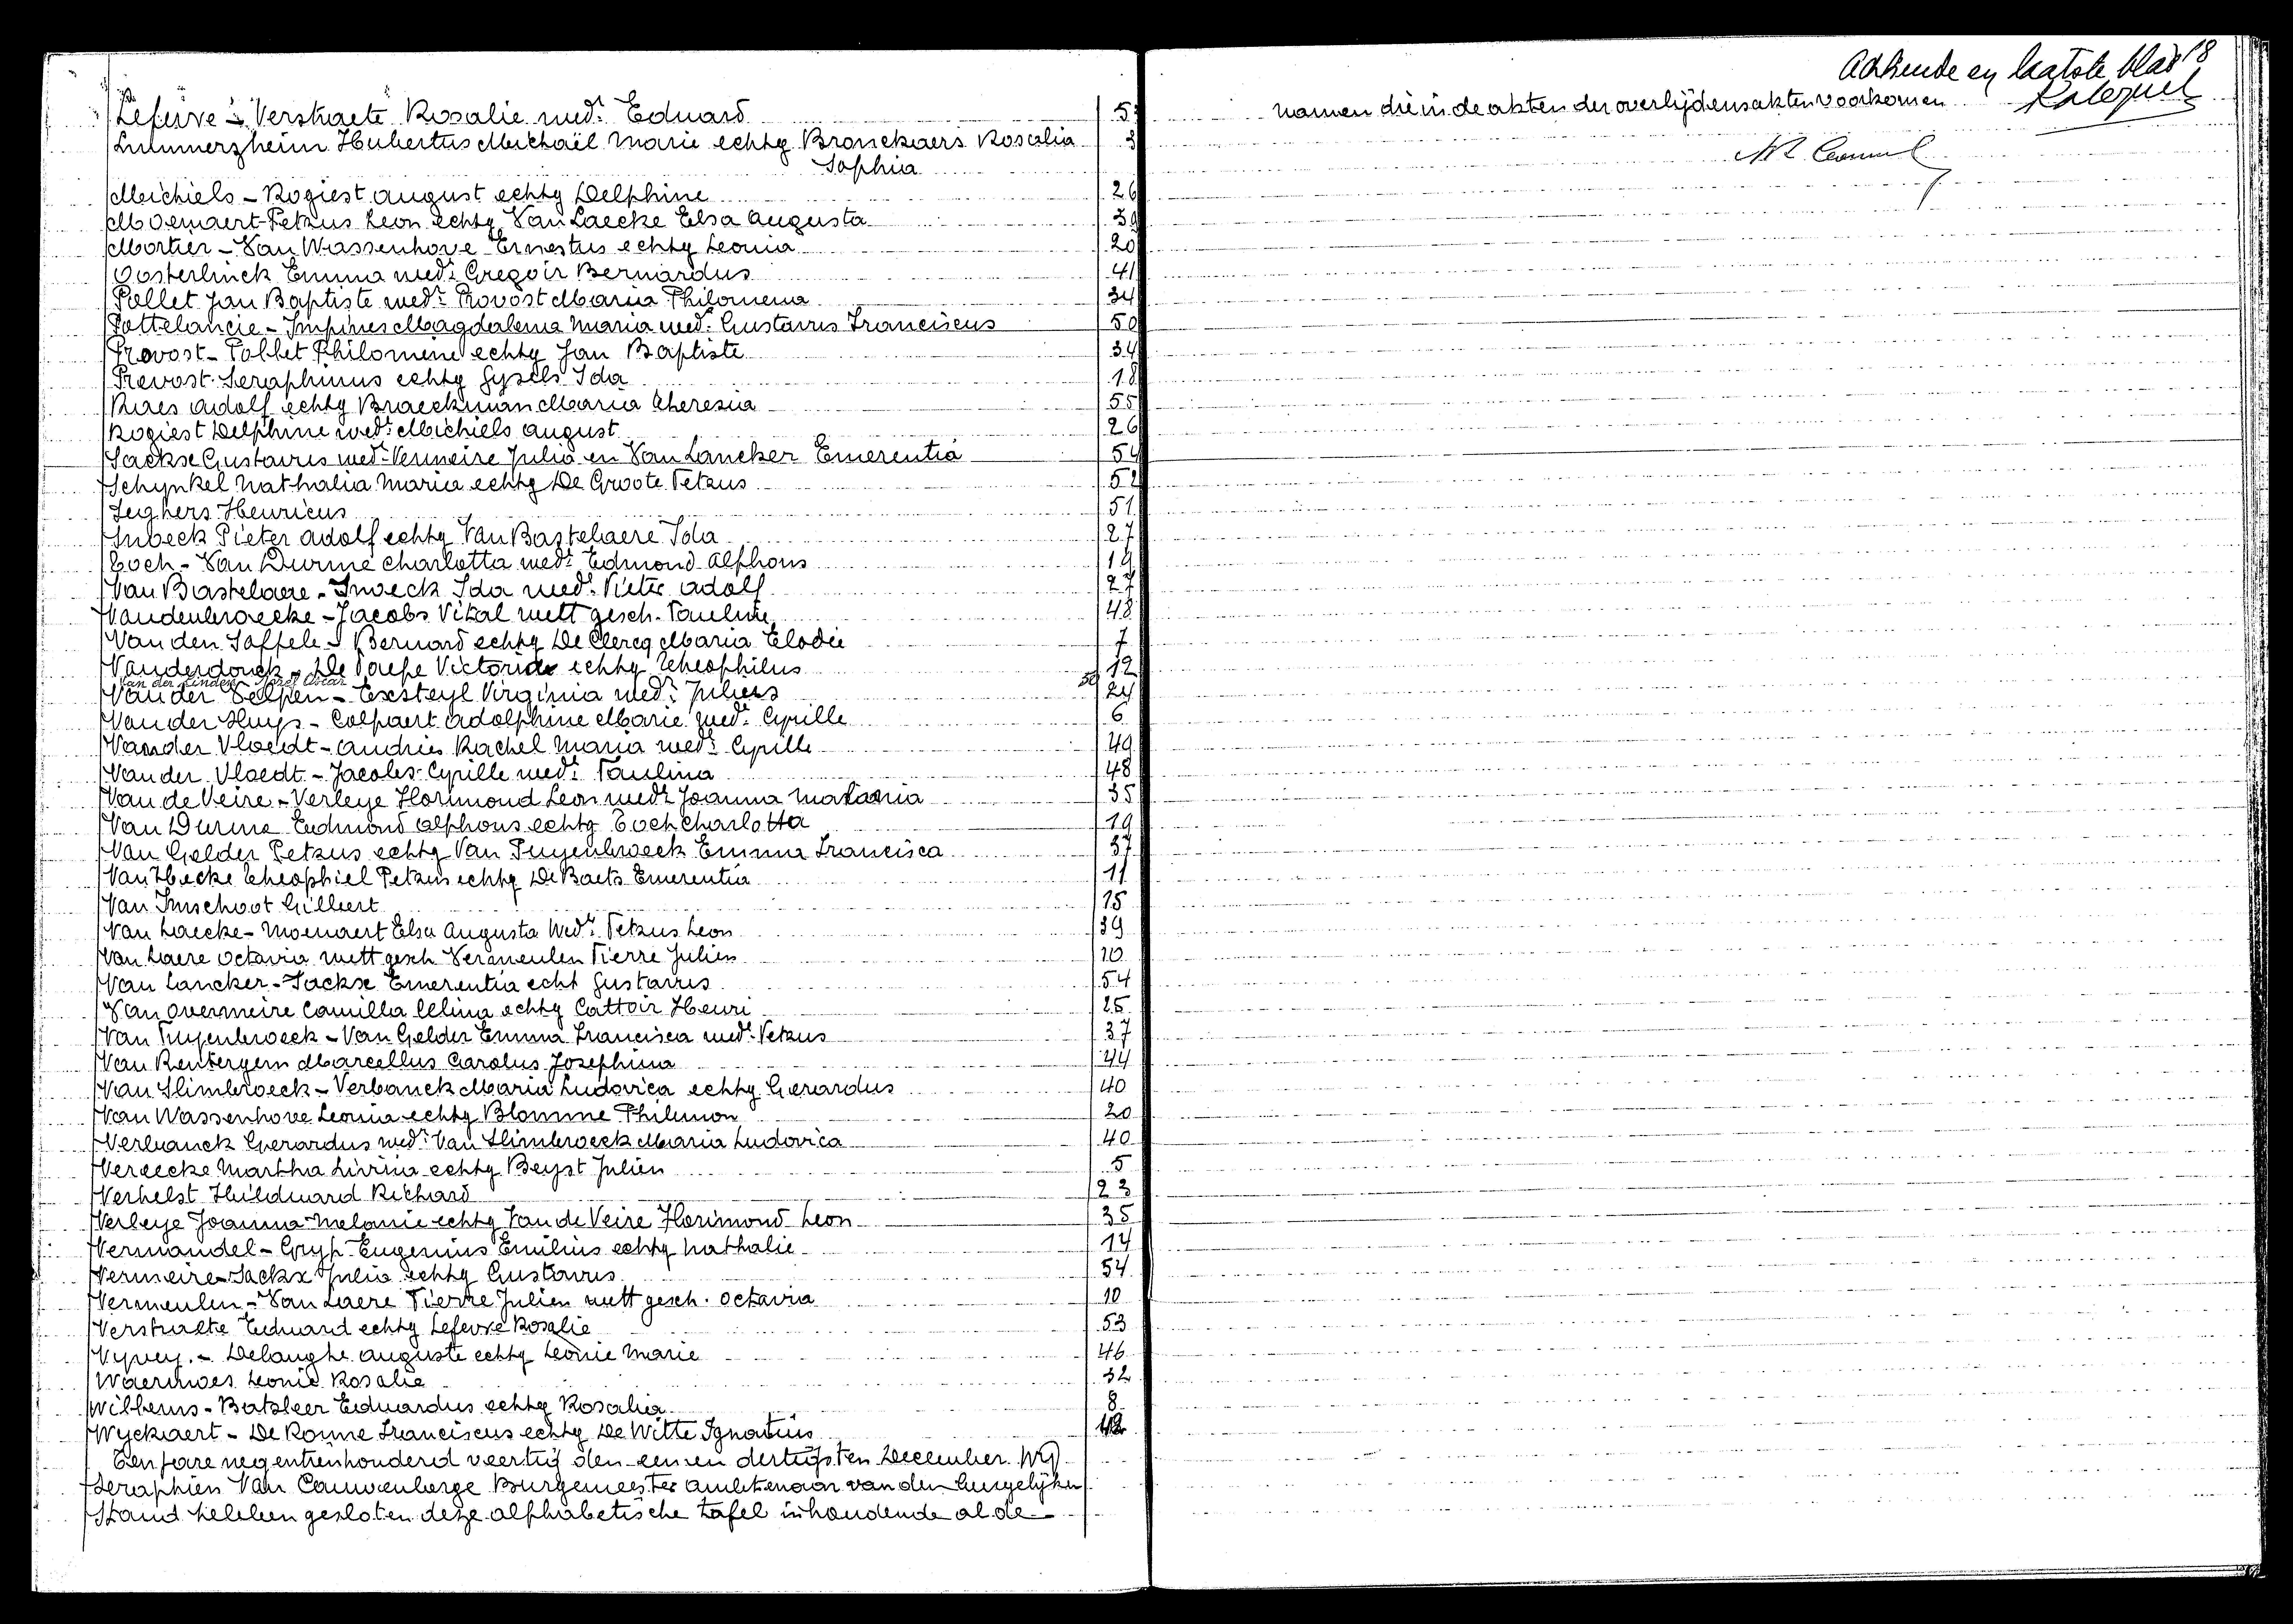 Lefevre - Verstraete Rosalie wedr Eduard 5
Lummerzheim Hubertus Michaël Marie echtg Bronckaers Rosalia 3
Sophia
Michiels - Rogiest august echtg Delphine 26
Moenaert-Petrus Leon echtg Van Laecke Elsa Augusta 39
Mortier - Van Wassenhove Ernestus echtg Leonia 20
Oosterlinck Emma wedr Gregoir Bernardus 41
Pollet Jan Baptiste wedr Provost Maria Philomena 34
Pottelancie - Impines Magdalena Maria wedr Gustavus Franciscus 50
Provost - Pollet Philomene echtg Jan Baptiste 34
Prevost Seraphinus echtg Gysels Ida 18
Roes Adolf echtg Braeckman Maria Theresia 55
Rogiest Delphine wedr Michiels august 26
Sackse Gustavus wedr Vermeire Julia en Van Lancker Emerentia 54
Schynkel Nathalia Maria echtg De Groote Petrus 52
Seghers Henricus 51
Snoeck Pieter Adolf echtg Van Bastelaere Ida 27
Toch - Van Durme Charlotta wedr Edmond Alphons 19
Van Bastelaere - Snoeck Ida wedr Pieter Adolf 27
Vandenbroecke - Jacobs Vital wett gesch. Pauline 48
Van den Saffele - Bernard echtg De Clercq Maria Elodie 7
Vanderdonck - De Paepe Victoria echtg Theophilus 12
Van der Linden - Karel Oscar 50
Van der Selpen - Exsteyl Virginia wedr Juliens 24
Van der Huys - Colpaert Adolphine Marie wedr Cyrille 6
Van der Vloedt - Andries Rachel Maria wedr Cyrille 49
Van der Vloedt - Jacobs Cyrille wedr Paulina 48
Van de Veire - Verleye Florimond Leon wedr Joanna 35
Van Durme Edmond Alphons echtg Toch Charlotta 19
Van Gelder Petrus echtg Van Puyenbroeck Emma Francisca 37
Van Hecke Theophiel Petrus echtg De Baets Emerentia 11
Van Imschoot Gilbert 15
Van Laecke - Moenaert Elsa Augusta Wedr Petrus Leon 39
Van Laere Octavia wett gesch Vermeulen Pierre Julien 10
Van Lancker - Sackse Emerentia echt Gustavus 54
Van Overmeire Camilla Elina echtg Cattoir Henri 25
Van Puyenbroeck - Van Gelder Emma Francisca wedr Petrus 37
Van Rentergem Marcellus Carolus Josephina 44
Van Slimbroeck - Verbanck Maria Ludovica echtg Gerardus 40
Van Wassenhove Leonia echtg Blomme Philemon 20
Verbanck Gerardus wedr Van Slimbroeck Maria Ludovica 40
Vereecke Martha Livina echtg Beyst Julien 5
Verhelst Hilduard Richard 23
Verleye Joanna Melanie echtg Van de Veire Florimond Leon 35
Vermandel - Gryp Eugenius Emilius echtg Nathalie 14
Vermeire - Sackx Julia echtg Gustavus 54
Vermeulen - Van Laere Pierre Julien wett gesch. Octavia 10
Verstraete Eduard echtg Lefevre Rosalie 53
Vyvey. - Delanghe auguste echtg Leonie Marie 46
Waermoes Leonie Rosalie 32
Willems - Batsleer Eduardus echtg Rosalia 8
Wyckaert - De Ronne Franciscus echtg De Witte Ignatius
Ten jare negentienhonderd veertig den een en dertigsten December Wij
Seraphien Van Cauwenberge Burgemeester ambtenaar van den burgelijken
Stand hebben gesloten deze alphabetische tafel inhoudende al de
Achtiende en laatste blad 18
namen die in de akten der overlijdensakten voorkomen